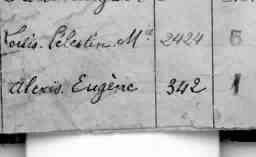 Louis. Célestin. Mie 2424 5
Alexis. Eugène 342 1